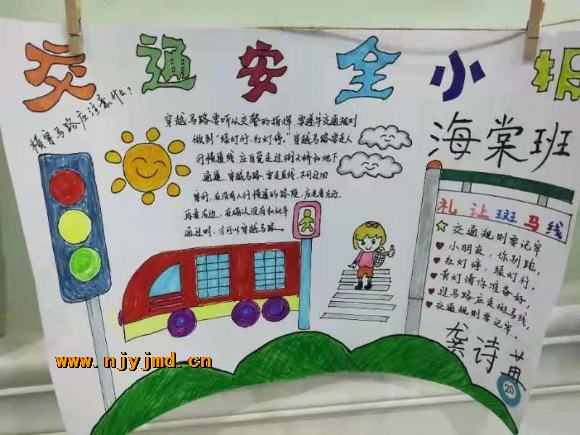 交通安全小报
横穿马路应注意什么？
穿越马路要听从交警的指挥，要遵守交通规则
做到“绿灯行，红灯停。”穿越马路要走人
行横道线，应自觉走过街天桥和地下
通道，穿越马路要走直线，不可迂回
穿行，在没有人行横道的路段，应先看左边
再看右边，在确认没有机动车
通过时，才可以穿越马路。
海棠班
礼让斑马线
交通规则要记牢
小朋友，你别跑，
红灯停，绿灯行，
黄灯请你准备好，
过马路应走斑马线，
交通规则要记牢。
龚诗
20
www.njyjmd.cn